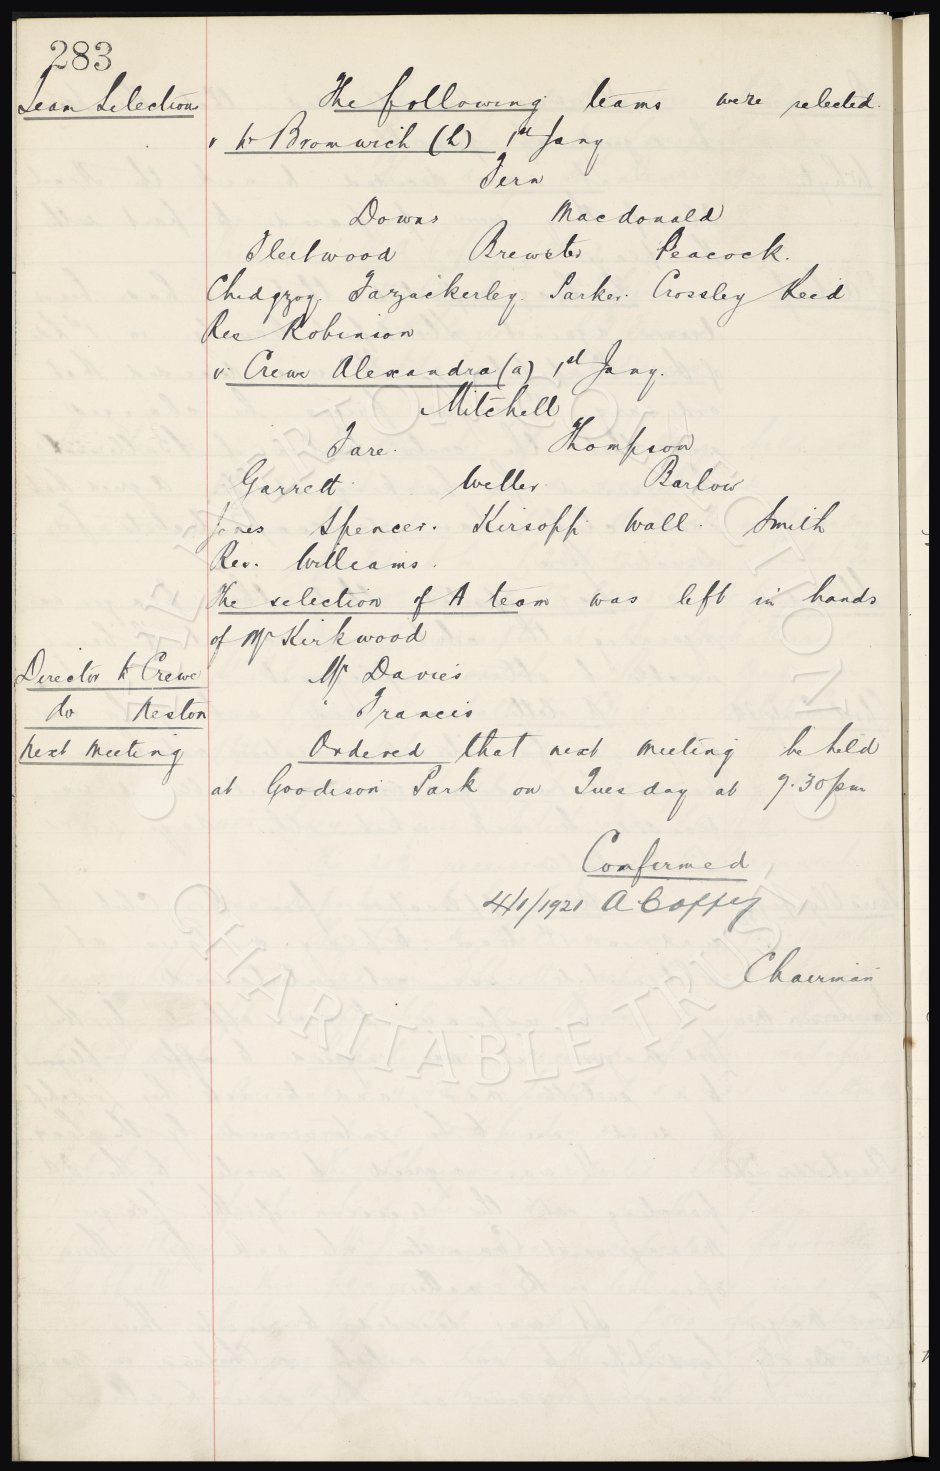 283
Team Selections The following teams were selected.
v W Bromwich (h) 1st Jany
Fern
Downs Macdonald
Fleetwood Brewster Peacock.
Chedgzoy. Fazackerley. Parker. Crossley Reid
Res Robinson
v. Crewe Alexandra (a) 1st Jany.
Mitchell
Fare. Thompson
Garrett. Weller. Barlow
Jones Spencer. Kirsopp Wall. Smith
Res. Williams.
The selection of A team was left in hands
of Mr Kirkwood
Director to Crewe Mr Davies
do Neston " Francis
Next Meeting Ordered that next meeting be held
at Goodison Park on Tuesday at 7.30 pm
Confirmed
4/1/1921 A. Coffey
Chairman
EVERTON COLLECTION
CHARITABLE TRUST